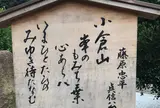 小倉山
峯のもみぢ葉
心あらば
いまひとたびの
みゆき待たなむ
藤原忠平